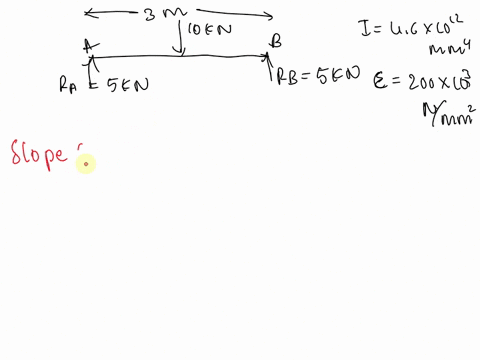 3 m
10 kN
A
B
RA = 5 kN
RB = 5 kN
I = 4.6 × 10¹² mm⁴
E = 200 × 10³ N/mm²
Slope